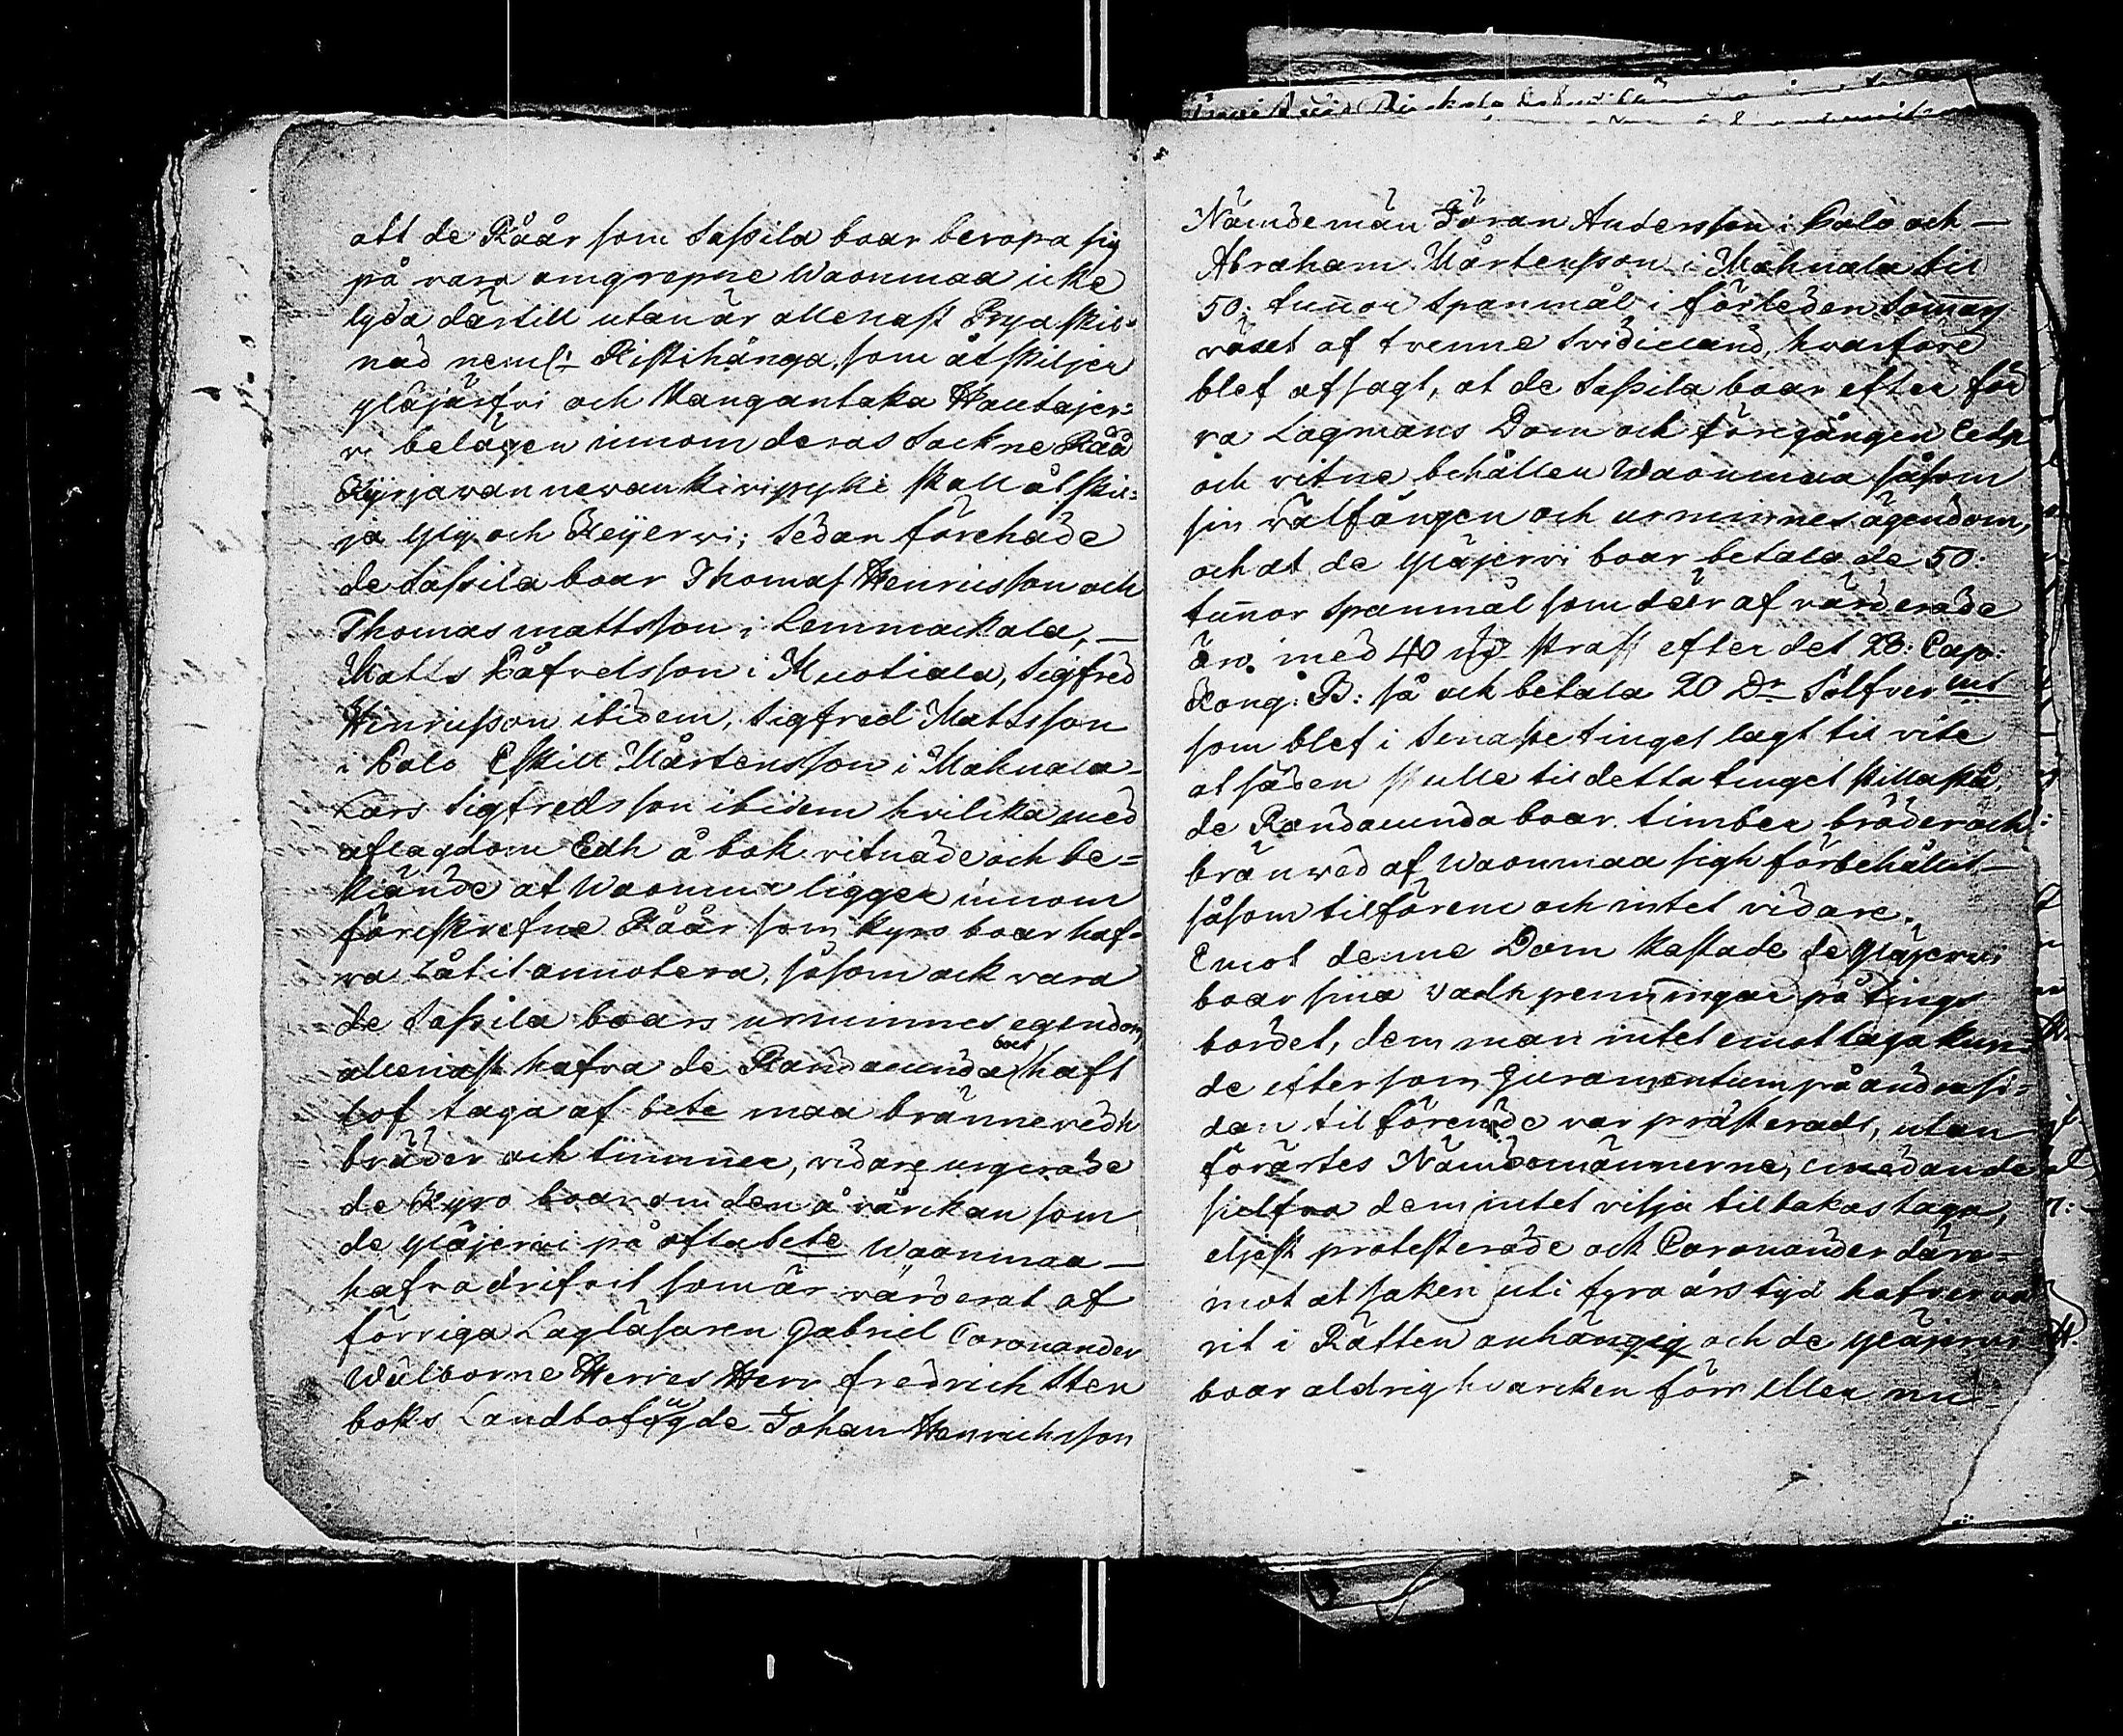 att de Råår som Saßila boar beropa sig
på vara omgrepne Waonmaa icke
lyda därtill utan är allenast Byja skil-
nad neml: Ristihånga, som åtskiljer
yläjärfvi och Mangantaka Hautajer-
vi belägen innom deras Sockne Råå
Kyrjavannevankivipyki skall åtskil-
ja yly och Keyjervi; Sedan förehade
de Saßila boar Thomas Henricsson och
Thomas mattsson i Lemmackala, –
Matts Påfvelsson i Muotiala, Sigfred
Hinricsson ibidem, Sigfred Mattsson
i Palo Eskill Mårtensson i Mahnala-
Lars Sigfredsson ibidem hvilka med
aflagdom Edh å bok vitnade och be-
kiände at Waonmaa ligger innom
föreskrefne Råår som kyro boar haf-
va Låtit annotera, såsom ock vara
de Saßila boars urminnes egendom,
allenast hafva de Randamunda boer haft
lof taga af bete maa brännevedh
bräder och timmer, vidare urgerade
de Kyro boar om den åvärkan som
de yläjervi på oftabete Waonmaa –
hafva drifvit som är värderat af
förriga Lagläsaren Gabriel Coronander
Wälborne Herres Herr Fredrich Sten
boks Landbofougde Johan Henrichsson
Nämdemän Jöran Andersson i Palo och –
Abraham Mårtensson i Mahnala til
50: tunnor Spanmål i förleden Somar
växet af tvenne Svidieland, hvarföre
blef afsagt, at de Saßila boar efter för
ra Lagmans Dom och föregången Edh
och vitne behållen Waonmaa såsom
sin välfången och urminnes ägendom,
och at de yläjervi boar betala de 50:
tunnor Spanmål som där af värderade
är. med 40 straff efter det 28: Cap:
Kong: B: så ock betala 20 Dr Sölfver mt
som blef i Senaste tinget lagt til vite
at säden skulle til detta tinget stillastå,
de Randamunda boar. timber bräder och
bränwed af Waonmaa sigh förbehållit –
såsom tilförene och intet vidare.
Emot denne Dom kastade de Yläjervi
boar sina Vadhpenningar på tings
bordet, dem man intet emottaga kun-
de efter som Juramentum på andra si-
dan til förende var præsterads, utan
förärtes Nämdemännerne, emedan de
sielfva dem intet vilja tilbakas taga,
eljest protesterade ock Coronander däre-
mot at saken uti fyra års tyd hafver va
rit i Rätten anhängig och de yläjervi
boar aldrig hvarcken förr eller nu